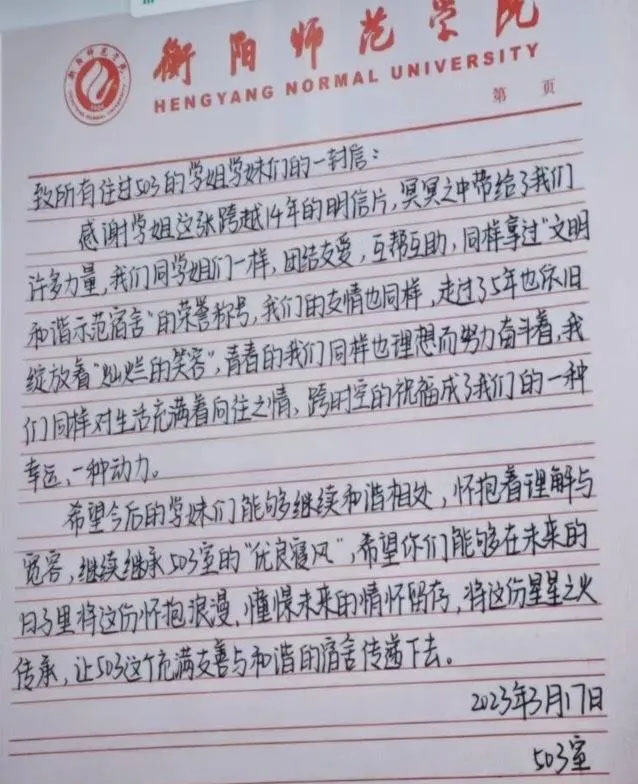 衡阳师范学院
HENGYANG NORMAL UNIVERSITY
第 页
致所有住过503的学姐学妹们的一封信：
感谢学姐这张跨越14年的明信片，冥冥之中带给了我们
许多力量，我们同学姐们一样，团结友爱，互帮互助，同样享过“文明
和谐示范宿舍”的荣誉称号，我们的友情也同样，走过了5年也依旧
绽放着“灿烂的笑容”，青春的我们同样也理想而努力奋斗着，我
们同样对生活充满着向往之情，跨时空的祝福成了我们的一种
幸运、一种动力。
希望今后的学妹们能够继续和谐相处，怀抱着理解与
宽容，继续继承503室的“优良寝风”，希望你们能够在未来的
日子里将这份怀抱浪漫，憧憬未来的情怀留存，将这份星星之火
传承，让503这个充满友善与和谐的宿舍传递下去。
2023年3月17日
503室